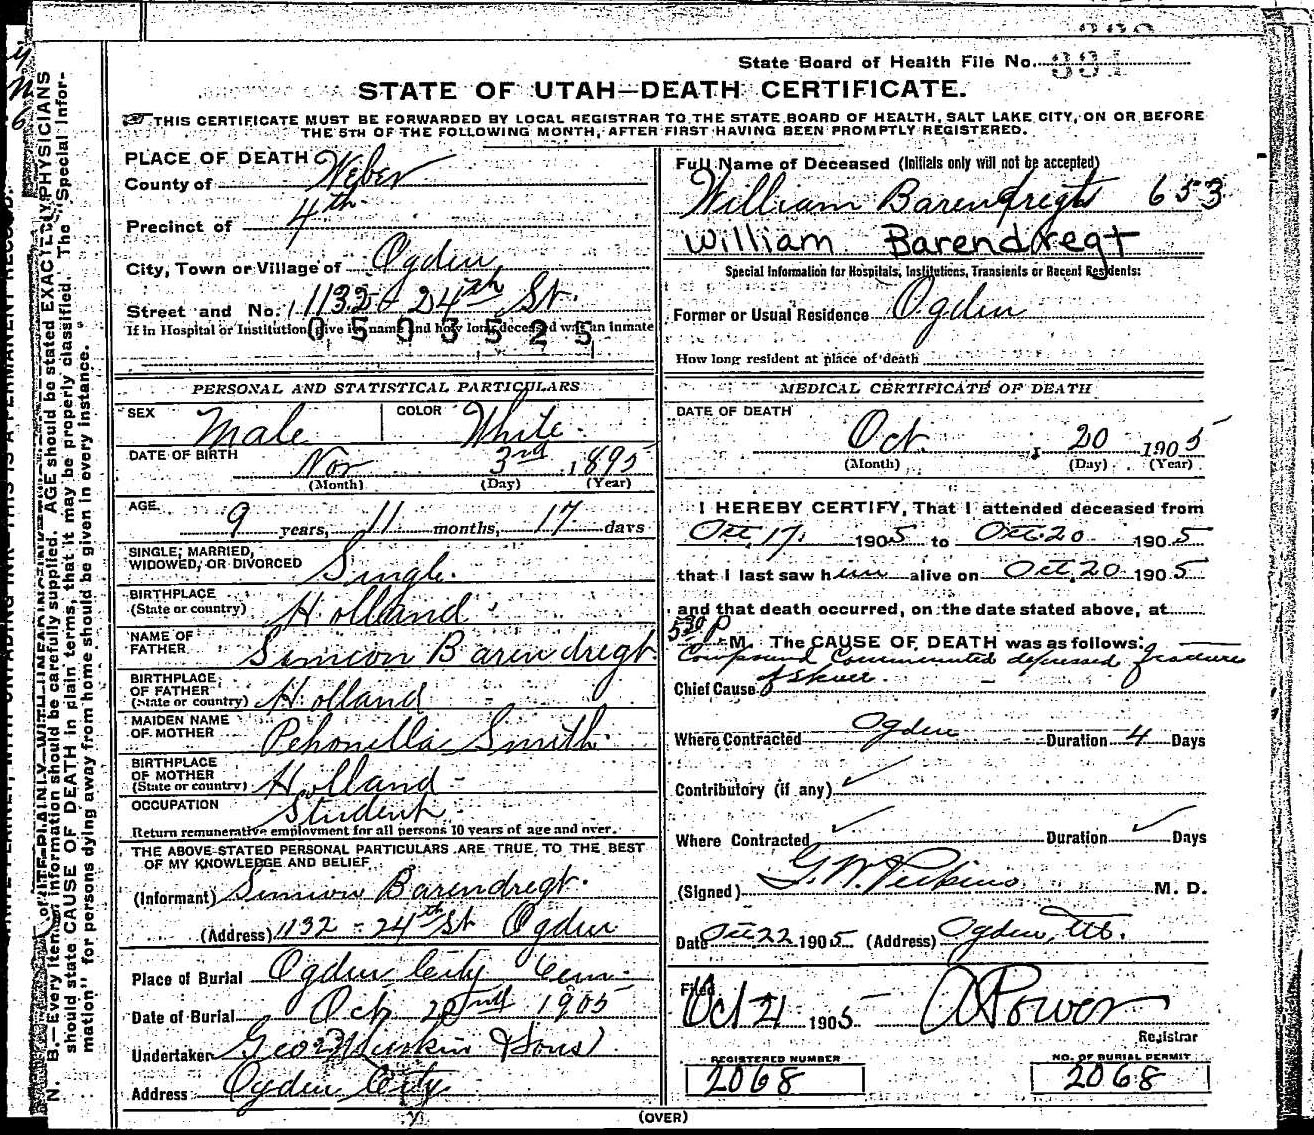 State Board of Health File No. 331
STATE OF UTAH—DEATH CERTIFICATE.
THIS CERTIFICATE MUST BE FORWARDED BY LOCAL REGISTRAR TO THE STATE BOARD OF HEALTH, SALT LAKE CITY, ON OR BEFORE
THE 5TH OF THE FOLLOWING MONTH, AFTER FIRST HAVING BEEN PROMPTLY REGISTERED.
PLACE OF DEATH
County of Weber
Precinct of 4th
City, Town or Village of Ogden
Street and No. 1132 - 24th St.
If in Hospital or Institution, give its name and how long deceased was an inmate
0 5 0 3 5 2 5
Full Name of Deceased (Initials only will not be accepted)
William Barendregts 653
William Barendregt
Special Information for Hospitals, Institutions, Transients or Recent Residents:
Former or Usual Residence Ogden
How long resident at place of death
PERSONAL AND STATISTICAL PARTICULARS
SEX Male COLOR White
DATE OF BIRTH Nov 3rd, 1895
(Month) (Day) (Year)
AGE 9 years, 11 months, 17 days
SINGLE, MARRIED,
WIDOWED, OR DIVORCED Single
BIRTHPLACE
(State or country) Holland
NAME OF
FATHER Simeon Barendregt
BIRTHPLACE
OF FATHER
(State or country) Holland
MAIDEN NAME
OF MOTHER Pehonella Smith
BIRTHPLACE
OF MOTHER
(State or country) Holland
OCCUPATION Student
Return remunerative employment for all persons 10 years of age and over.
THE ABOVE STATED PERSONAL PARTICULARS ARE TRUE TO THE BEST
OF MY KNOWLEDGE AND BELIEF
(Informant) Simion Barendregt.
(Address) 1132 - 24th St Ogden
Place of Burial Ogden City Cem.
Date of Burial Oct 22nd 1905
Undertaker Geo W Larkin & Sons
Address Ogden City
MEDICAL CERTIFICATE OF DEATH
DATE OF DEATH
Oct. 20 1905
(Month) (Day) (Year)
I HEREBY CERTIFY, That I attended deceased from
Oct. 17. 1905 to Oct. 20 1905
that I last saw him alive on Oct. 20 1905
and that death occurred, on the date stated above, at
5 30 P M. The CAUSE OF DEATH was as follows:
Compound Communuted depressed fracture
Chief Cause of Skull.
Where Contracted Ogden Duration 4 Days
Contributory (if any) ✓
Where Contracted ✓ Duration ✓ Days
(Signed) G. W. Perkins M. D.
Date Oct 22 1905 (Address) Ogden, Ut.
Filed Oct 21 1905 A Power
Registrar
REGISTERED NUMBER NO. OF BURIAL PERMIT
2068 2068
(OVER)
N. B.—Every item of information should be carefully supplied. AGE should be stated EXACTLY. PHYSICIANS
should state CAUSE OF DEATH in plain terms, that it may be properly classified. The "Special Infor-
mation" for persons dying away from home should be given in every instance.